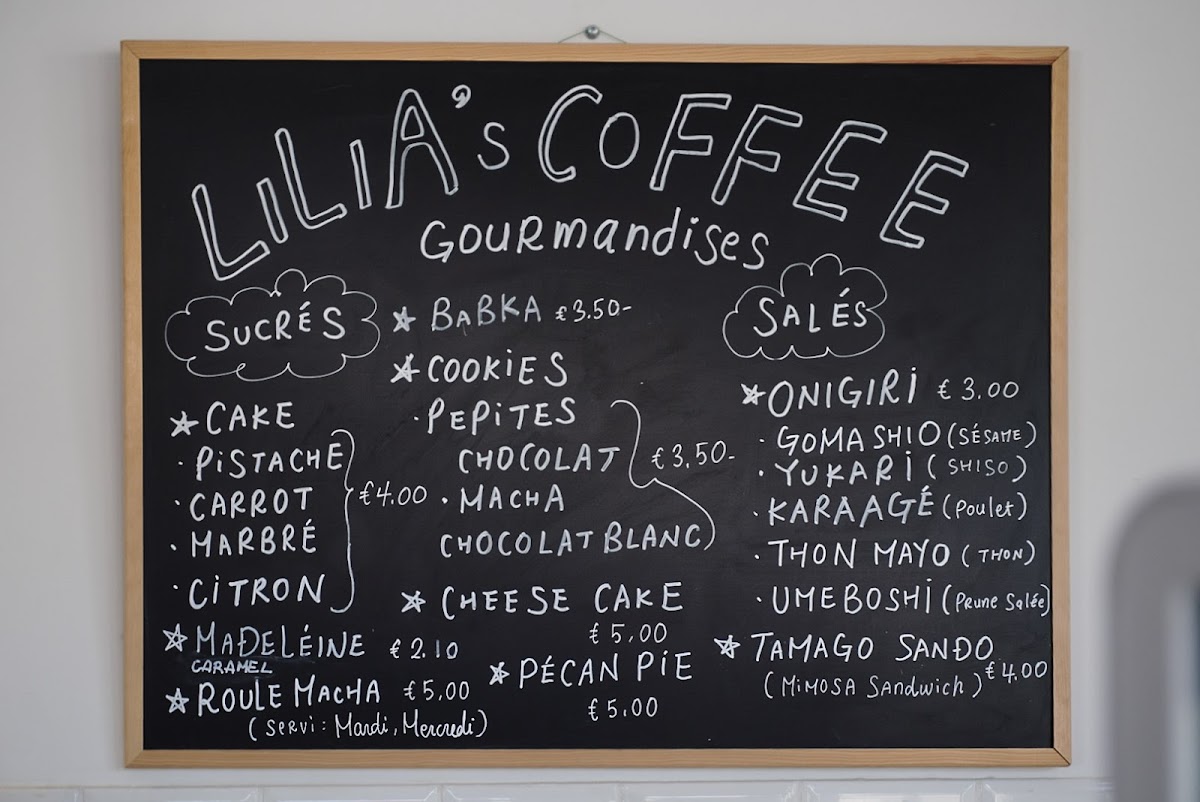 LiLiA's COFFEE
GOURmandises
SUCRÉS
☆ CAKE
· PiSTACHE
· CARROT
· MARBRÉ
· CiTRON
€4.00
☆ MADELÉINE € 2.10
CARAMEL
☆ ROULE MACHA € 5,00
(SERVi: Mardi, Mercredi)
☆ BABKA € 3.50-
☆ COOKiES
· PEPiTES
CHOCOLAT
€ 3,50-
· MACHA
CHOCOLAT BLANC
☆ CHEESE CAKE
€ 5,00
☆ PÉCAN PiE
€ 5.00
SALÉS
☆ ONIGIRi € 3.00
· GOMASHIO (SÉSAME)
· YUKARi (SHISO)
· KARAAGÉ (Poulet)
· THON MAYO (THON)
· UMEBOSHi (Prune Salée)
☆ TAMAGO SANDO
€ 4.00
(MiMOSA SANDWicH)